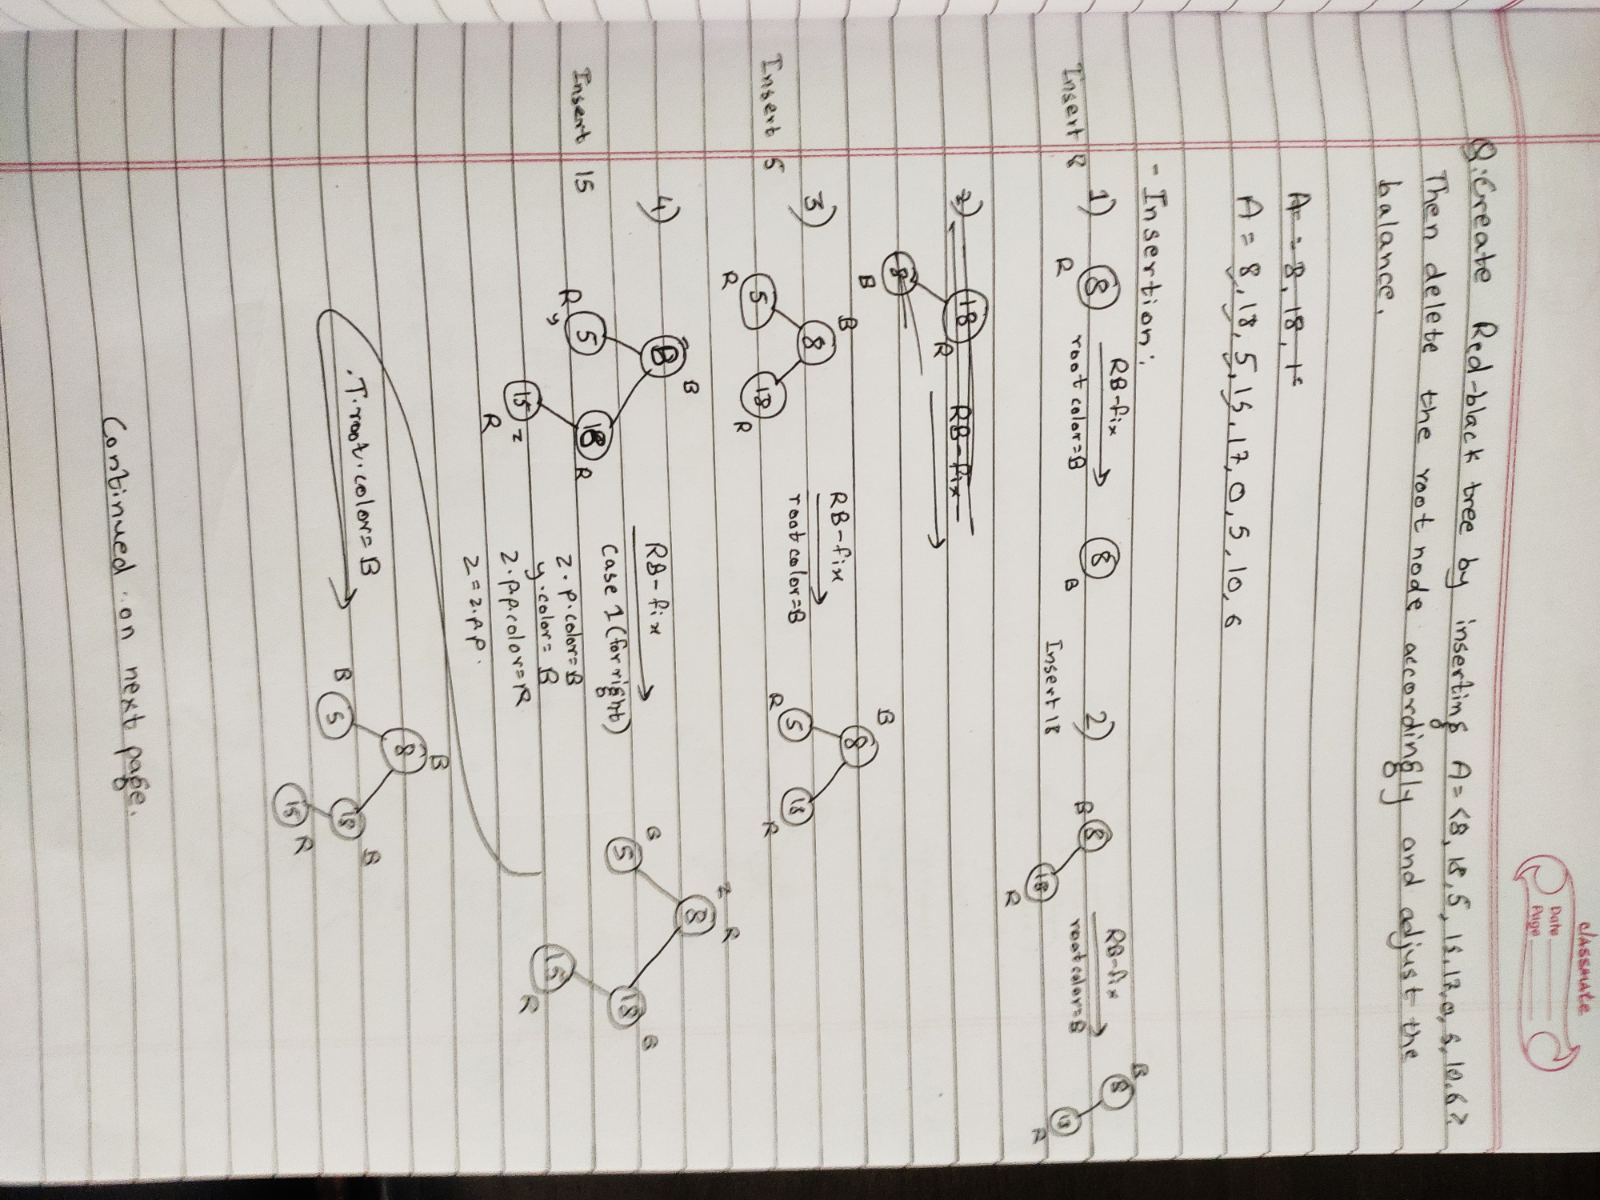 classmate
Date
Page
Q: Create Red-black tree by inserting A = <8, 18, 5, 15, 17, 0, 5, 10, 6>.
Then delete the root node accordingly and adjust the
balance.
A = 8, 18, 1
A = 8, 18, 5, 15, 17, 0, 5, 10, 6
- Insertion:
Insert 8
1) 8 R RB-fix root color=B 8 B
2) Insert 18
B 8 18 R RB-fix root color=B B 8 18 R
2) 18 R 8 B RB-fix
3) Insert 5
B 8 5 R 18 R RB-fix root color=B B 8 5 R 18 R
4) Insert 15
B B 5 R y 18 R 15 z R
RB-fix
case 1 (for right)
z.p.color=B
y.color=B
z.p.p.color=R
z=z.p.p.
z R 8 B 5 18 B 15 R
.T.root.color=B
B 8 B 5 18 B 15 R
Continued on next page.